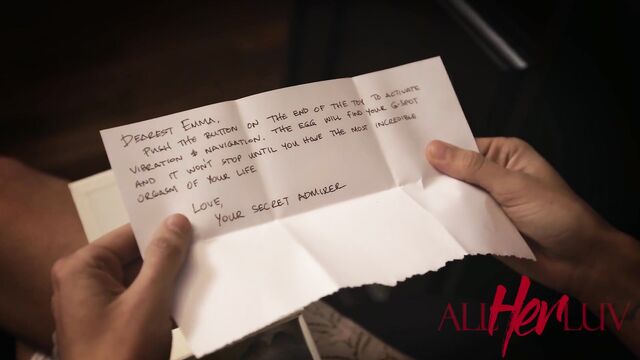 DEAREST EMMA,
PUSH THE BUTTON ON THE END OF THE TOY TO ACTIVATE
VIBRATION & NAVIGATION. THE EGG WILL FIND YOUR G-SPOT
AND IT WON'T STOP UNTIL YOU HAVE THE MOST INCREDIBLE
ORGASM OF YOUR LIFE
LOVE,
YOUR SECRET ADMIRER
ALL Her LUV